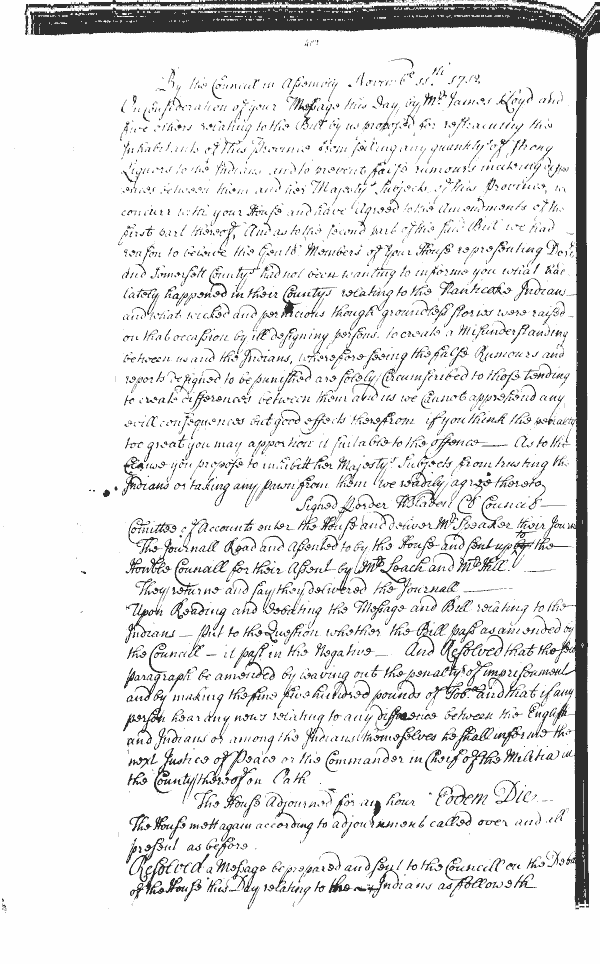 By the Councill in Assembly Novemb.r 11th 1712.
On Consideration of your Message this Day by Mr. James Lloyd and
five others relating to the Bill by us proposed for restraining the
Inhabitants of this Province from selling any quantity of strong
Liquors to the Indians and to prevent false rumours inciteing
ences between them and her Majestys Subjects of this Province, we
concurr with your House and have agreed to the Amendments of the
first part thereof, And as to the second part of the said Bill we had
reason to believe the Gentl. Members of your House representing
and Somersett Countys had not been wanting to informe you what has
lately happened in their Countys relating to the Nanticoke Indians
and what wicked and pernicious though groundless stories were raised
on that occassion by ill designing persons to create a Misunderstanding
between us and the Indians, wherefore seeing the false Rumours and
reports designed to be punished are solely Circumscribed to those tending
to create differences between them and us we Cannot apprehend any
evill consequences but good effects therefrom if you think the penalty
too great you may apportion it suitable to the offence — As to the
Clause you propose to inhibitt her Majestys Subjects from trusting the
Indians or taking any pawn from them we readily agree thereto
Signed p order W Bladen Cl Council
Comittee of Accounts enter the House and deliver Mr. Speaker their Journ
The Journall Read and Assented to by the House and sent up to the
Honble Councill for their Assent by Mr. Leach and Mr. Hill.
They returne and say they delivered the Journall
Upon Reading and debating the Message and Bill relating to the
Indians — Put to the Question whether the Bill pass as amended by
the Councill — it past in the Negative — And Resolved that the
paragraph be amended by leaving out the penalty of imprisonment
and by making the fine five hundred pounds of Tob.o and that if any
person hear any news relating to any difference between the English
and Indians or among the Indians themselves he shall informe the
next Justice of Peace or the Commander in Cheif of the Militia in
the County thereof on Oath
The House Adjourned for an hour Eodem Die
The House mett again according to adjournment called over and all
present as before.
Resolved a Message be prepared and sent to the Councill on the
of the House this Day relating to the Indians as followeth